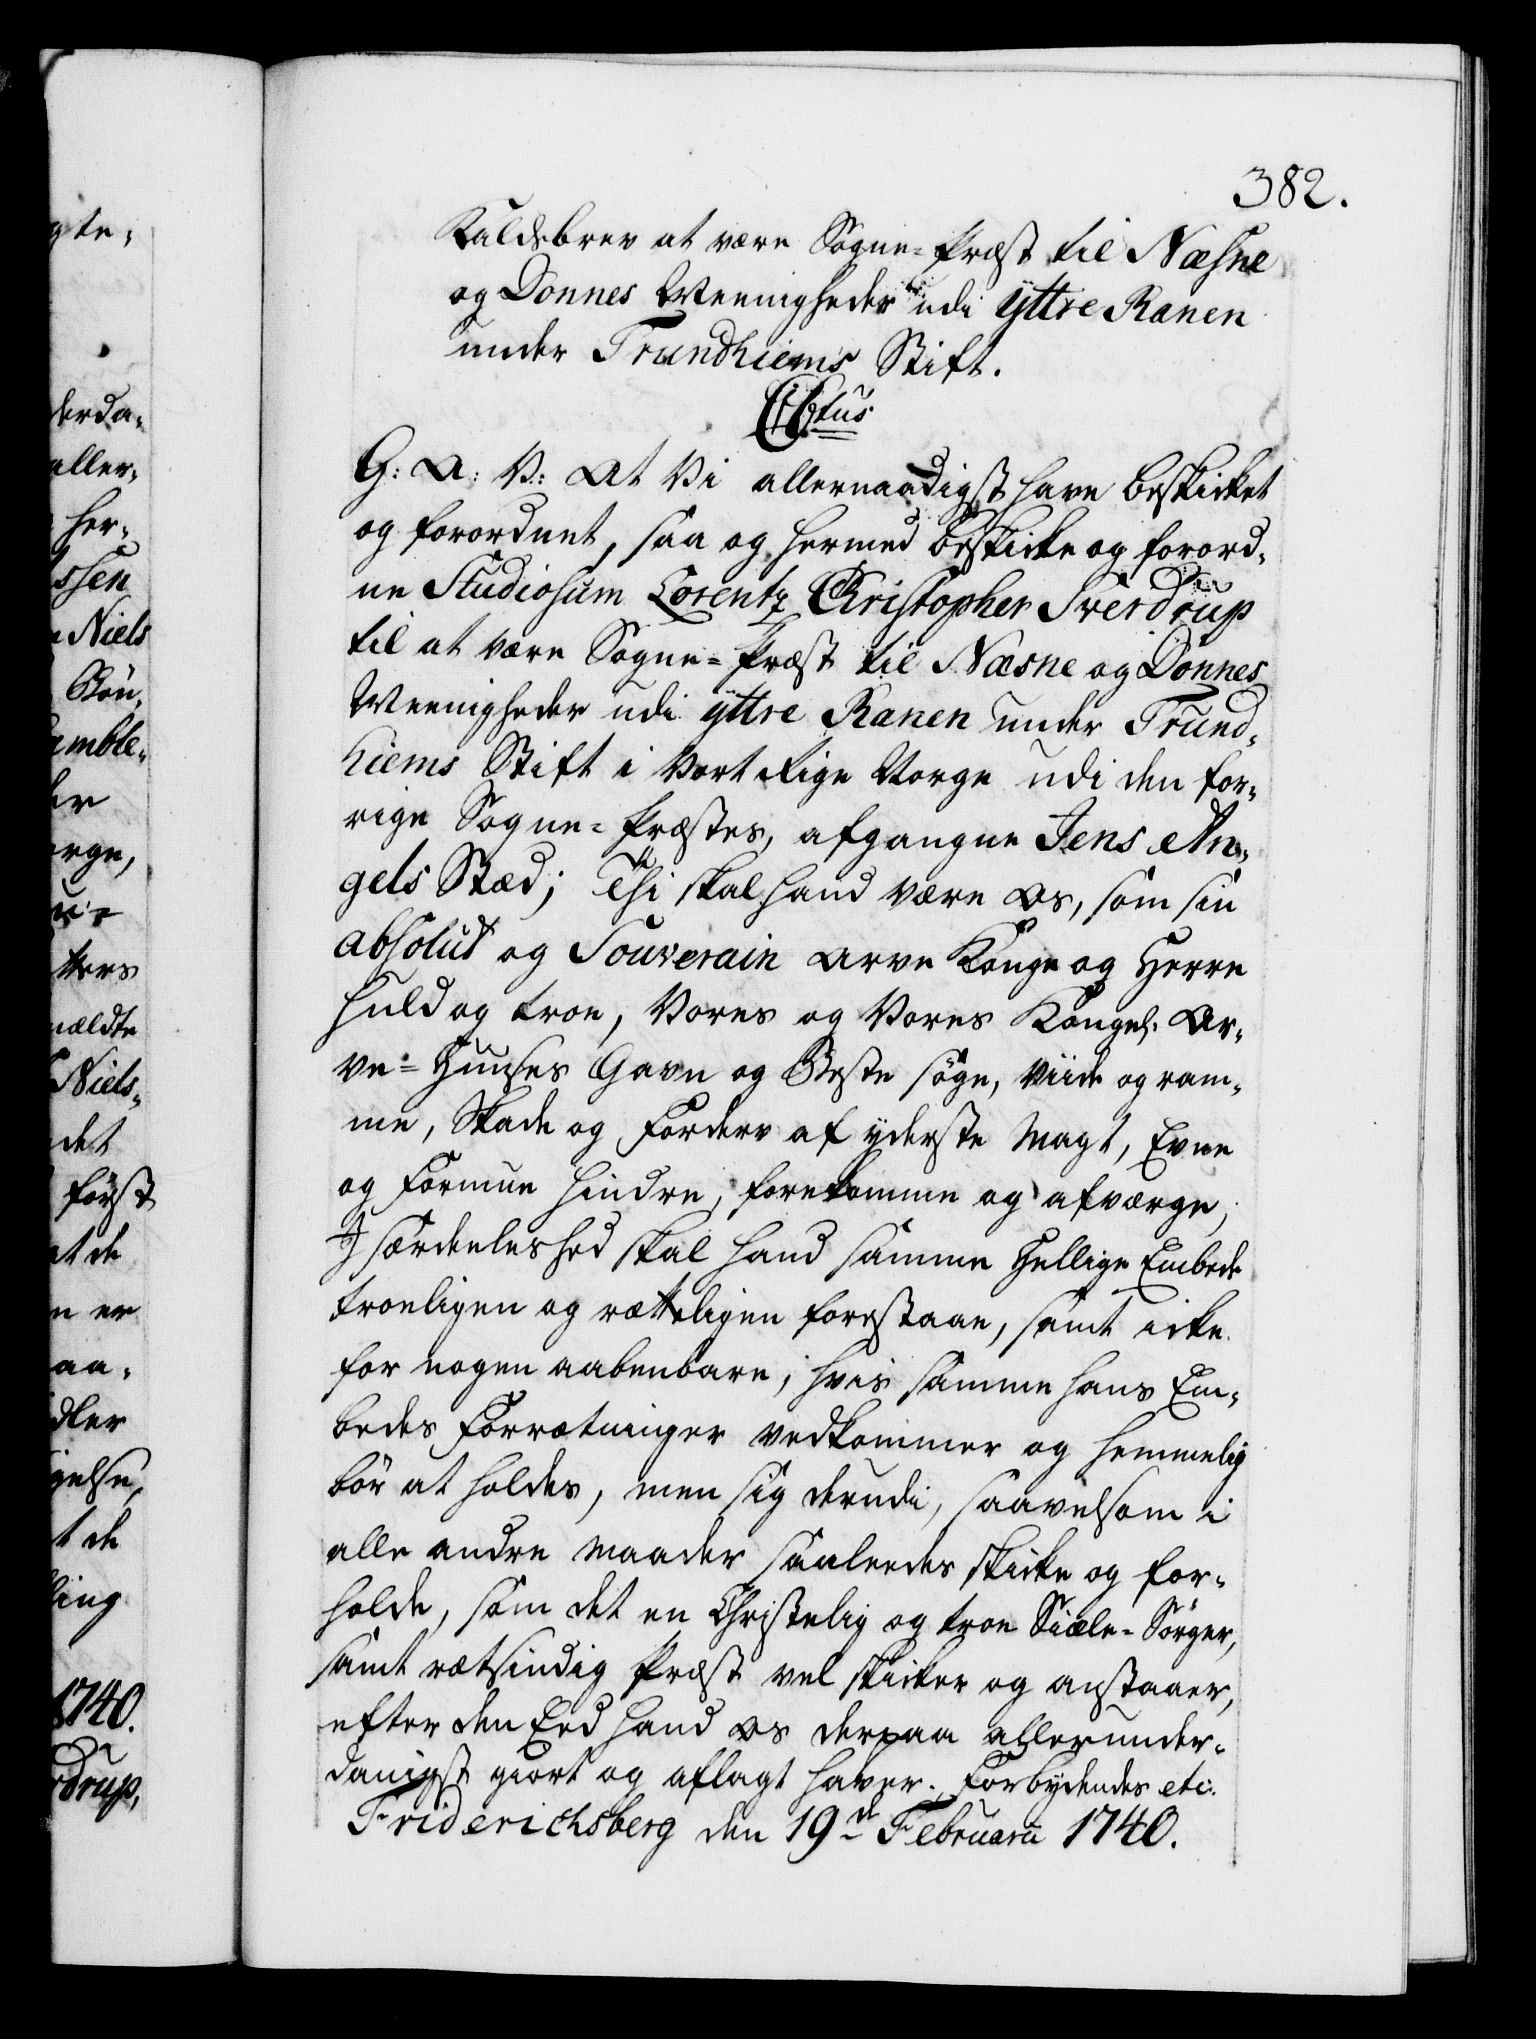 382.
Kaldsbrev at være Sogne-Præst til Næsne
og Dønnes Meenigheder udi Yttre Ranen
under Trundhiems Stift.
C6tus
G: A: V: At Vi allernaadigst have beskicket
og forordnet, saa og hermed beskicke og forord-
ne Studiosum Lorentz Christopher Sverdrup
til at være Sogne-Præst til Næsne og Dønnes
Meenigheder udi Yttre Ranen under Trund-
hiems Stift i Vort Rige Norge udi den for-
rige Sogne-Præstes, afgangne Jens An-
gels Stæd; Thi skal hand være os, som sin
absolut og Souverain Arve Konge og Herre
huld og troe, Vores og Vores Kongel: Ar-
ve-Huuses Gavn og Beste søge, Viide og ram-
me, Skade og Forderv af yderste Magt, Evne
og Formue hindre, forekomme og afværge,
J særdeleshed skal hand samme Hellige Embede
troeligen og rætteligen forestaae, samt icke
for nogen aabenbare, hvis samme hans Em-
bedes Forrætninger vedkommer og hemmelig
bør at holdes, men sig derudi, saavelsom i
alle andre Maader saaleedes skicke og for-
holde, som det en Christelig og troe Siæle-Sørger,
samt rætsindig Præst vel skicker og anstaaer,
efter den Eed hand os derpaa allerunder-
danigst giort og aflagt haver. Forbydendes etc:
Friderichsberg den 19de Februarii 1740.